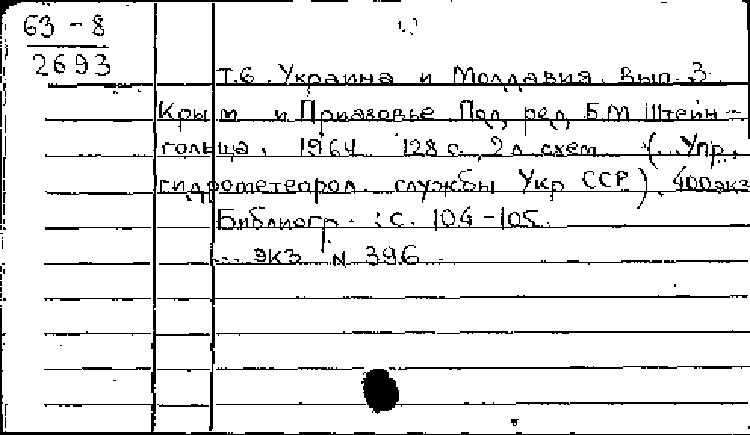 63 - 8
2693
Т.6. Украина и Молдавия. Вып. 3.
Крым и Приазовье. Под ред. Б.М. Штейн-
гольца. 1964 128 с., 2 л. схем. (Упр.
гидрометеорол. службы Укр ССР). 400 экз
Библиогр.: с. 104-105.
экз N 396